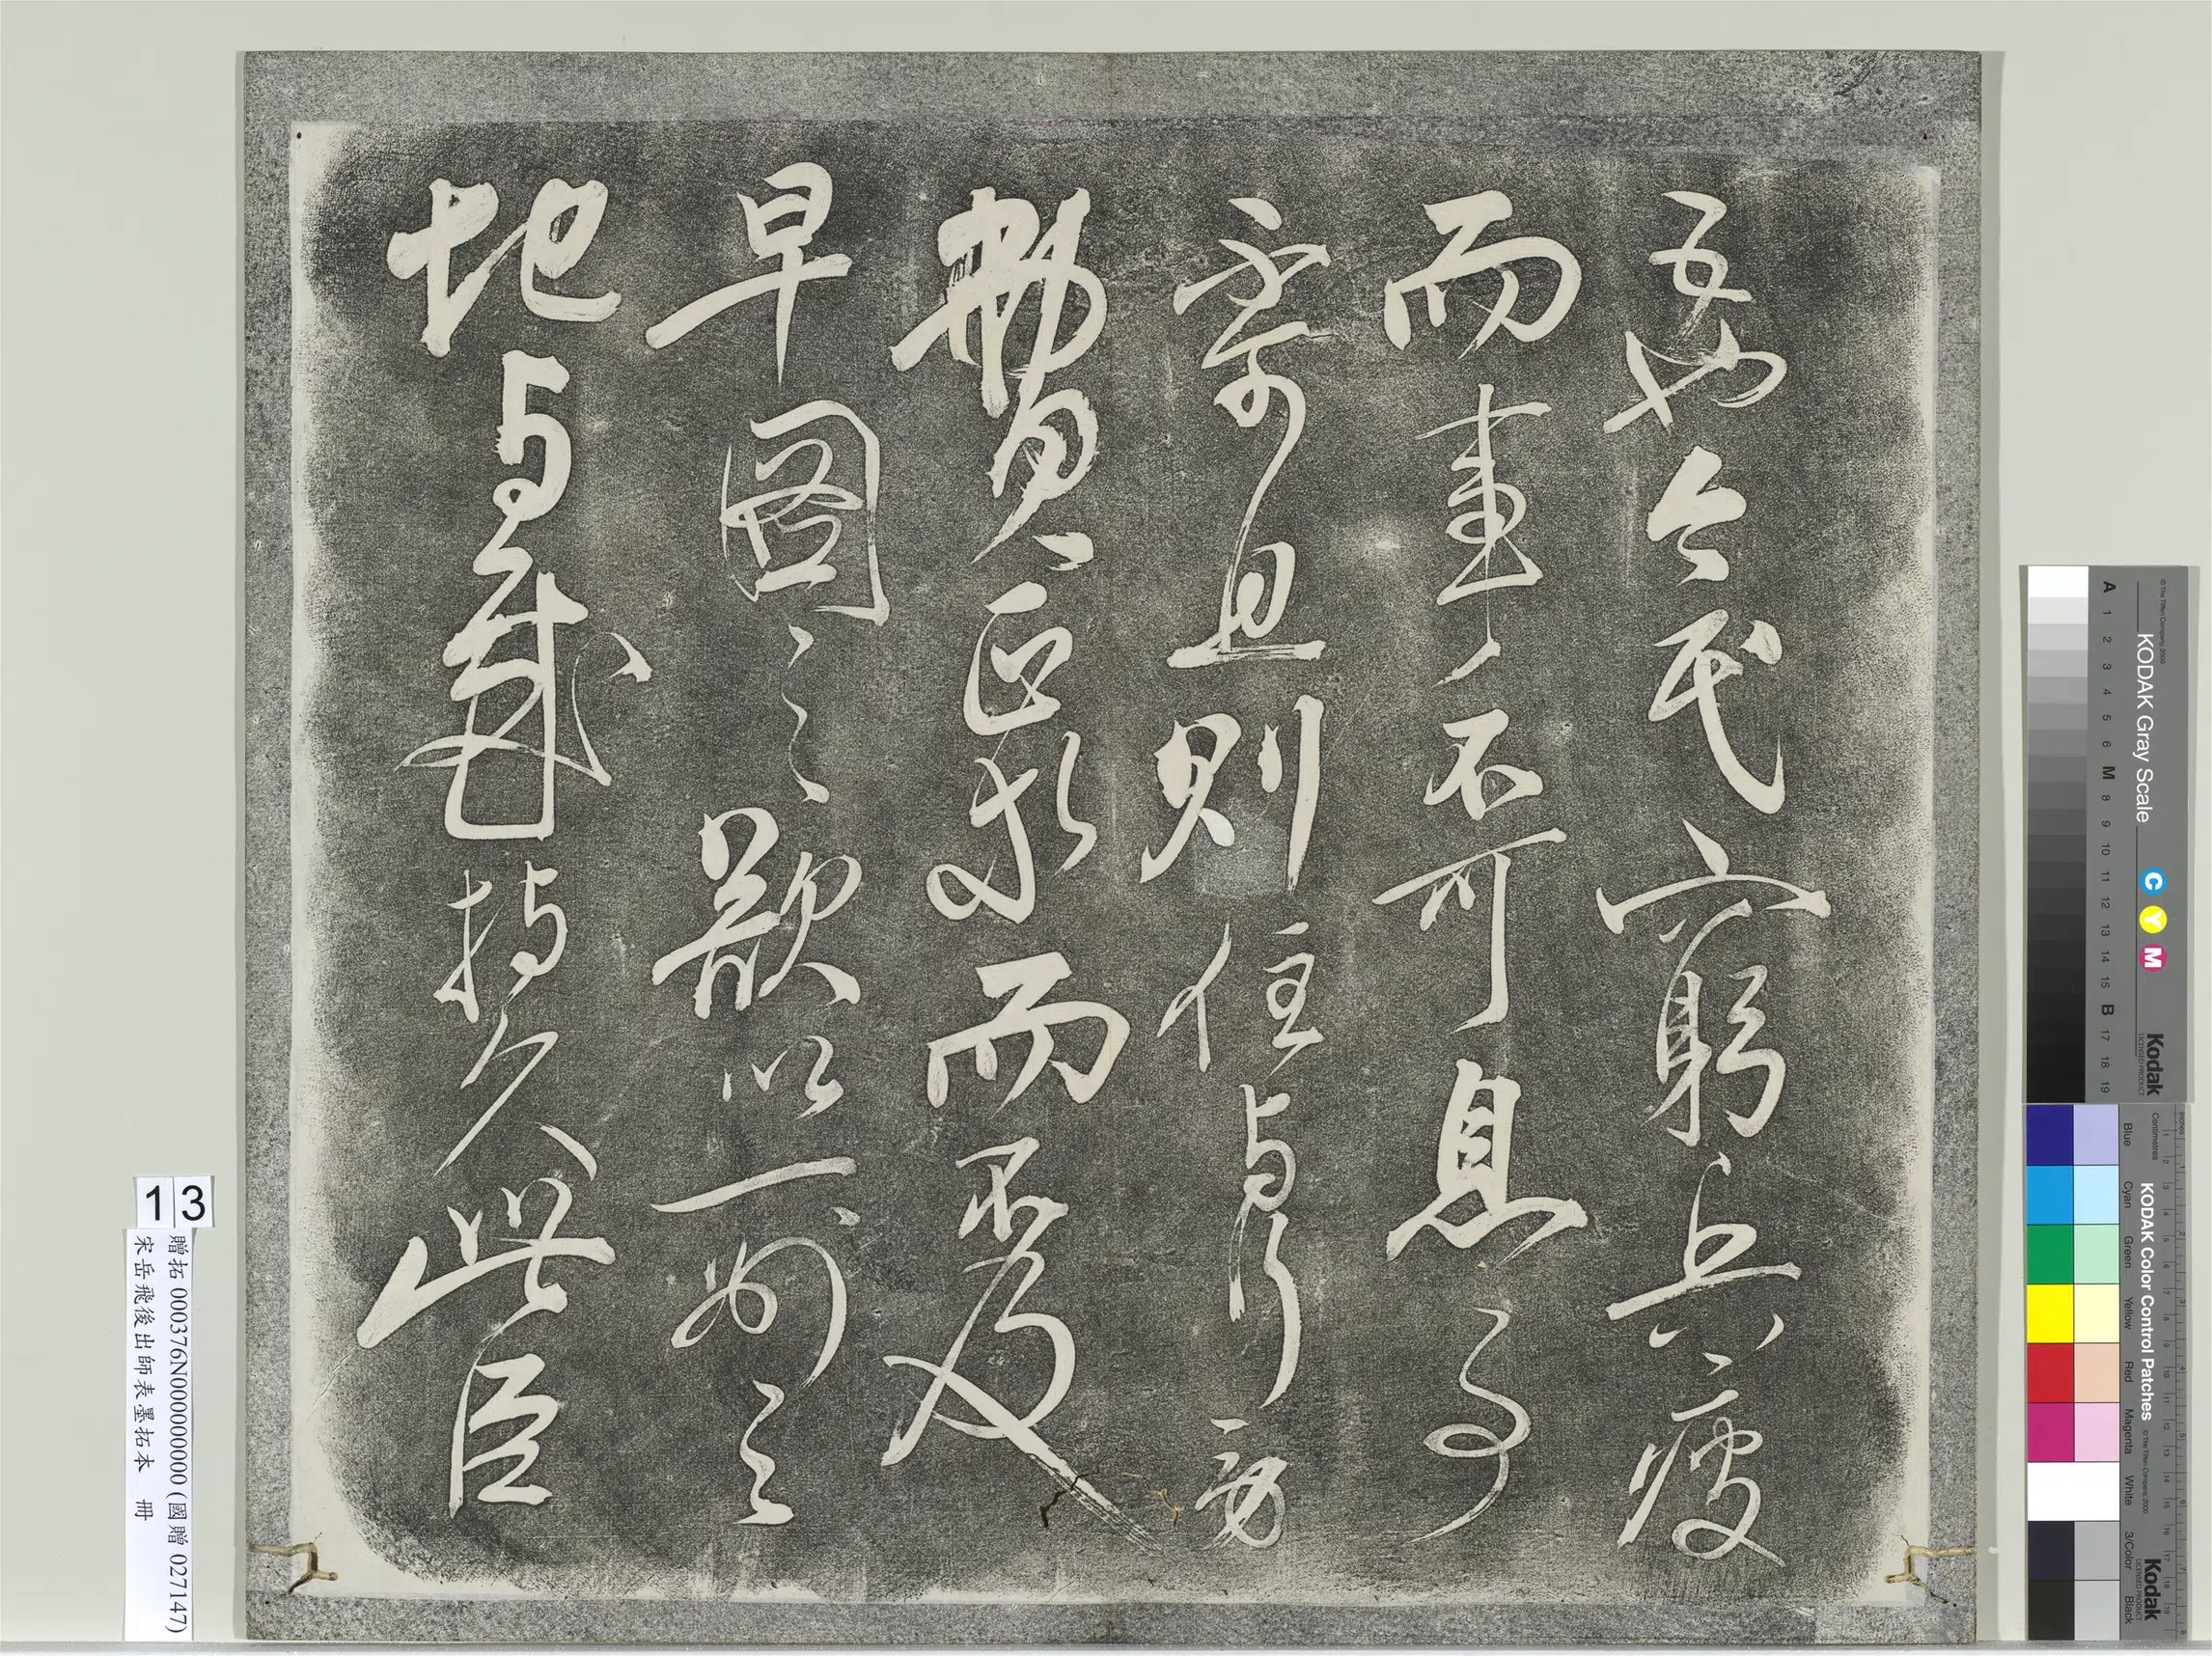 五也今民窮兵疲
而事不可息事
不可息則住与行勞
費正等而不及
早圖之欲以一州之
地与賊持久此臣
13
贈拓 000376N000000000 (國贈 027147)
宋岳飛後出師表墨拓本 冊
KODAK Gray Scale
C Y M
Kodak
LICENSED PRODUCT
A 1 2 3 4 5 6 M 8 9 10 11 12 13 14 15 B 17 18 19
© The Tiffen Company, 2000
KODAK Color Control Patches
Kodak
LICENSED PRODUCT
Blue Cyan Green Yellow Red Magenta White 3/Color Black
Centimetres